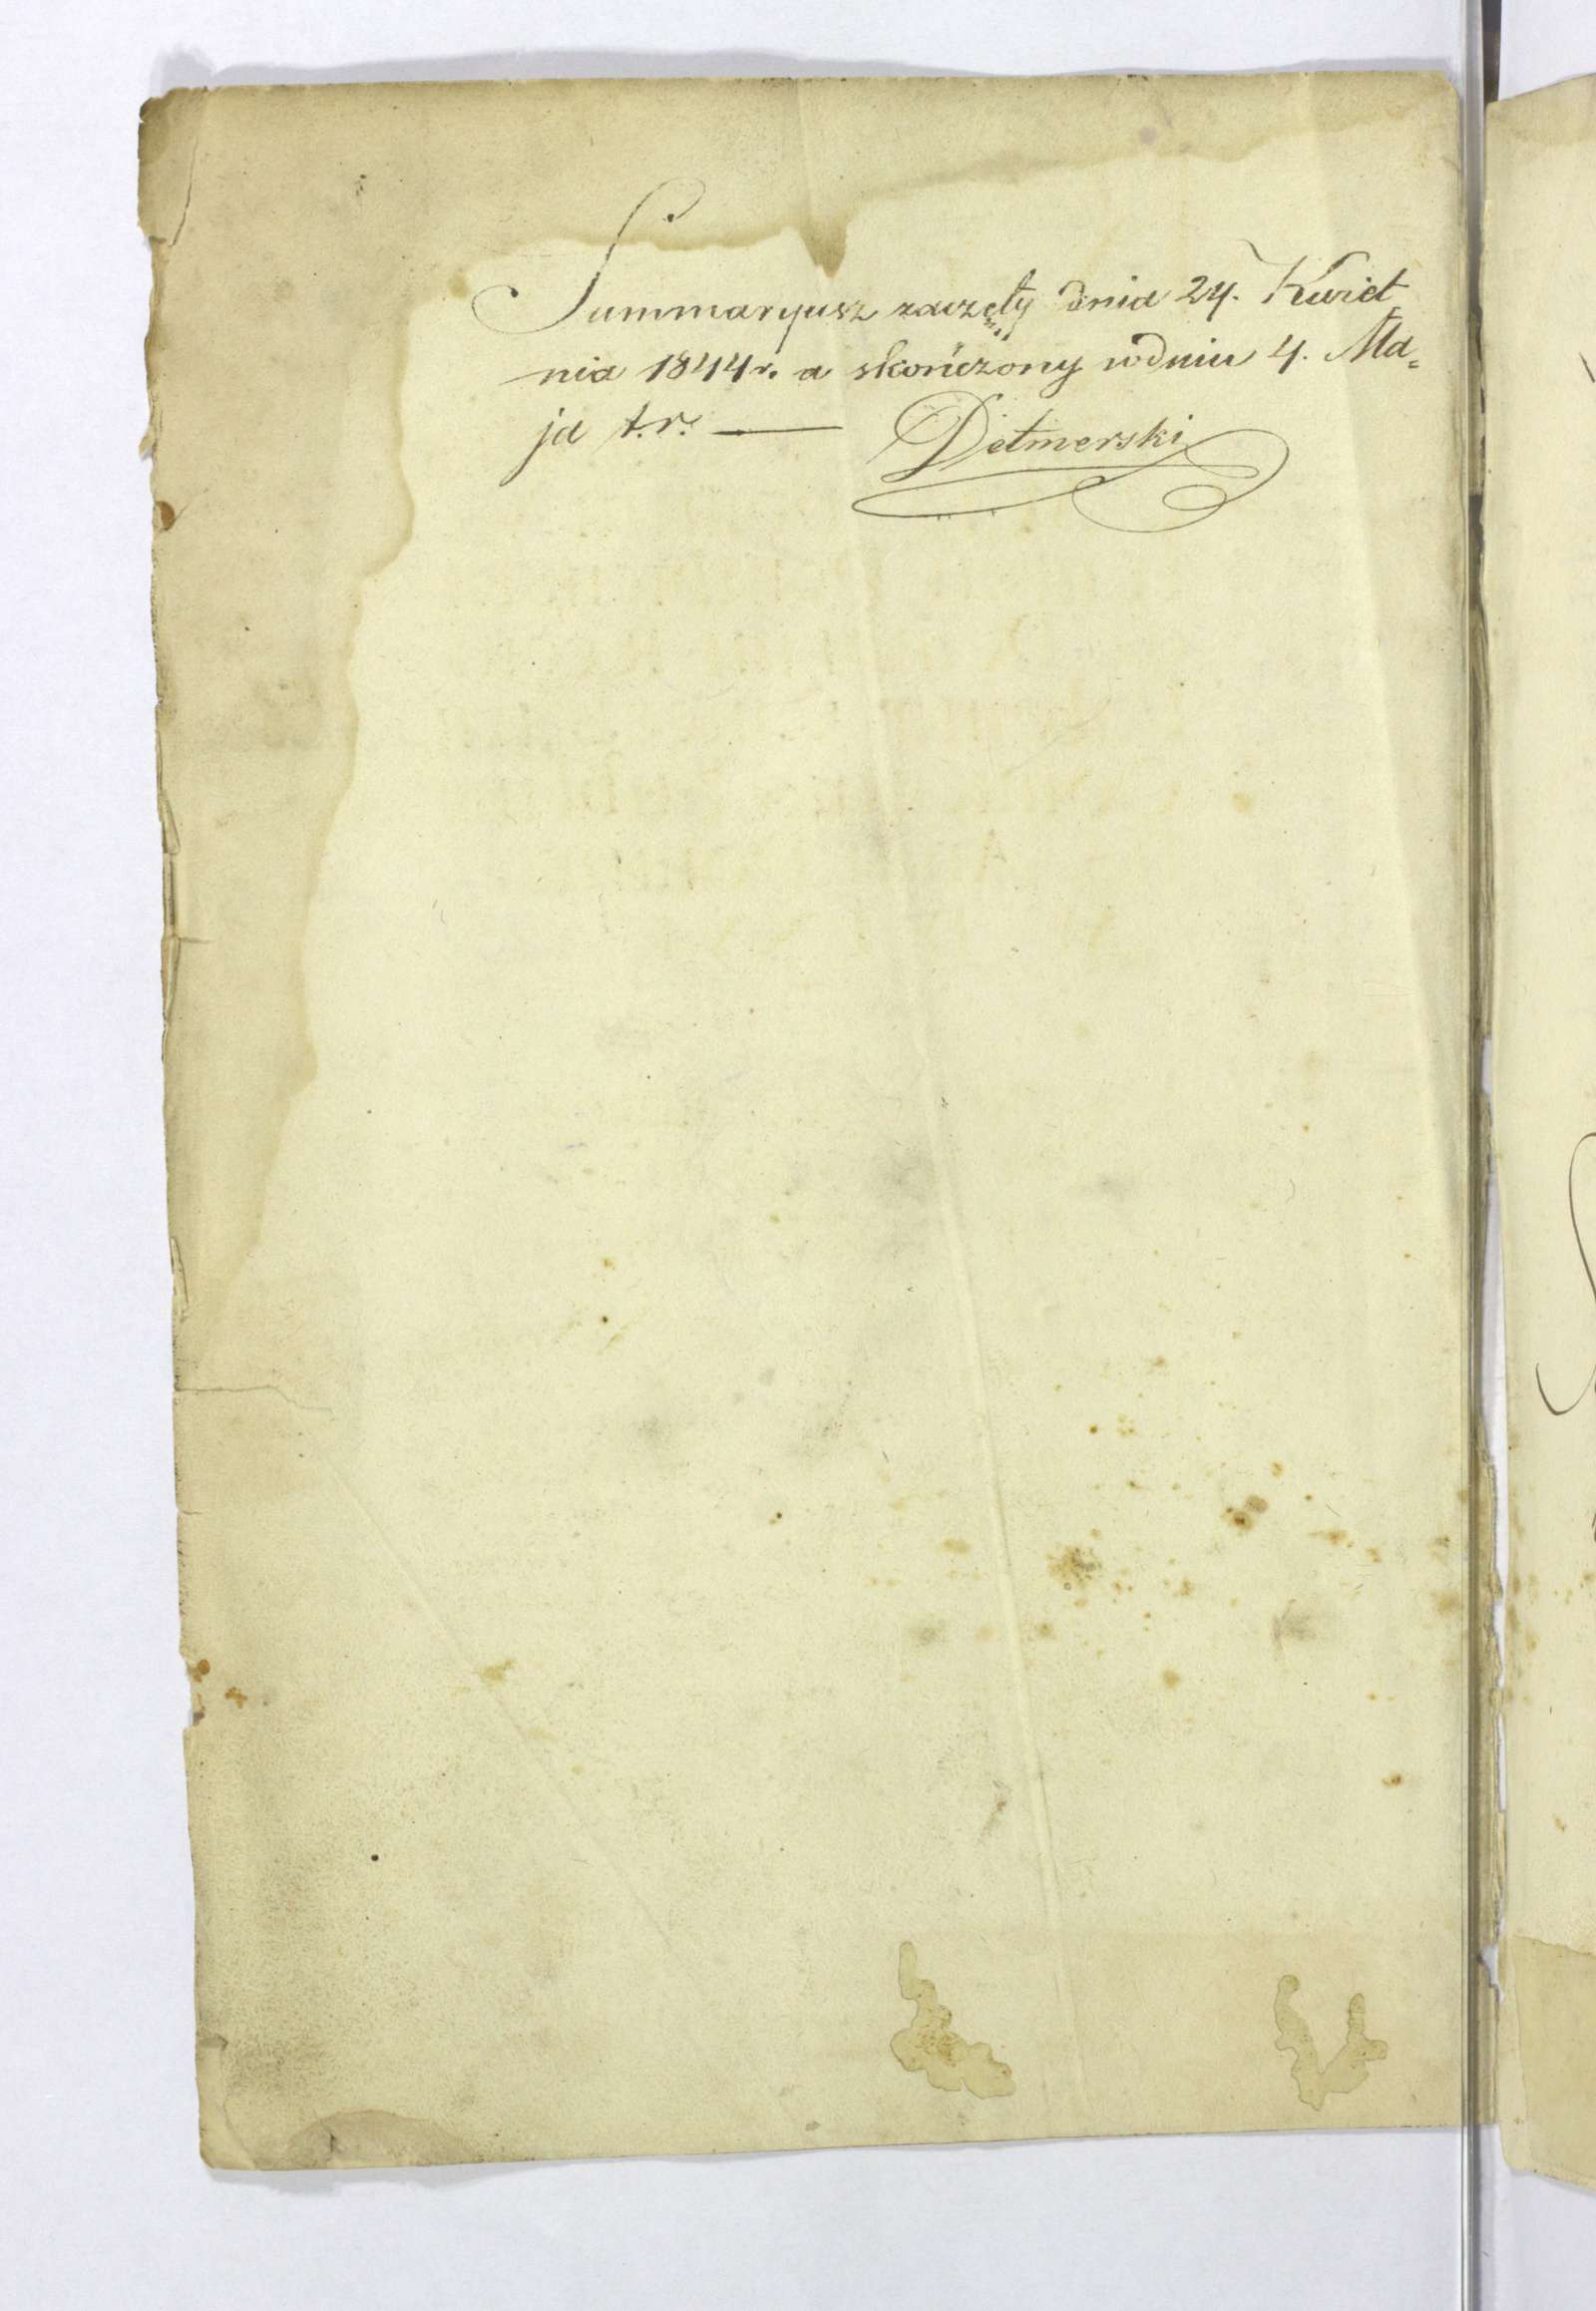 Summaryusz zaczęty dnia 24. Kwiet
nia 1844r. a skończony w dniu 4. Ma=
ja t.r. — Detmerski